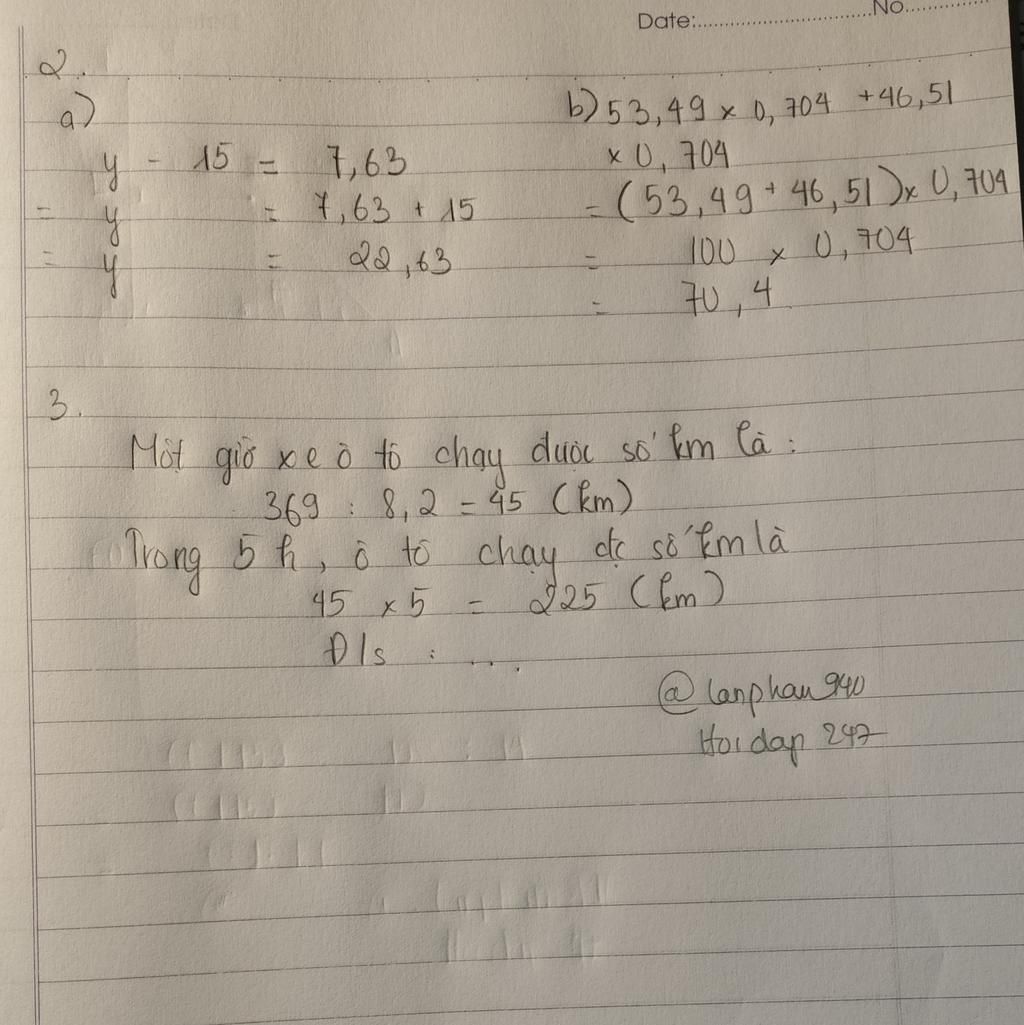 Date:.............................No.............
2.
a)
y - 15 = 7,63
= y = 7,63 + 15
= y = 22,63
b) 53,49 x 0,704 + 46,51
x 0,704
= (53,49 + 46,51) x 0,704
= 100 x 0,704
= 70,4
3.
Một giờ xe ô tô chạy được số km là :
369 : 8,2 = 45 (km)
Trong 5 h, ô tô chạy đc số km là
45 x 5 = 225 (km)
Đ/s : ....
@lanphan940
Hoidap 247